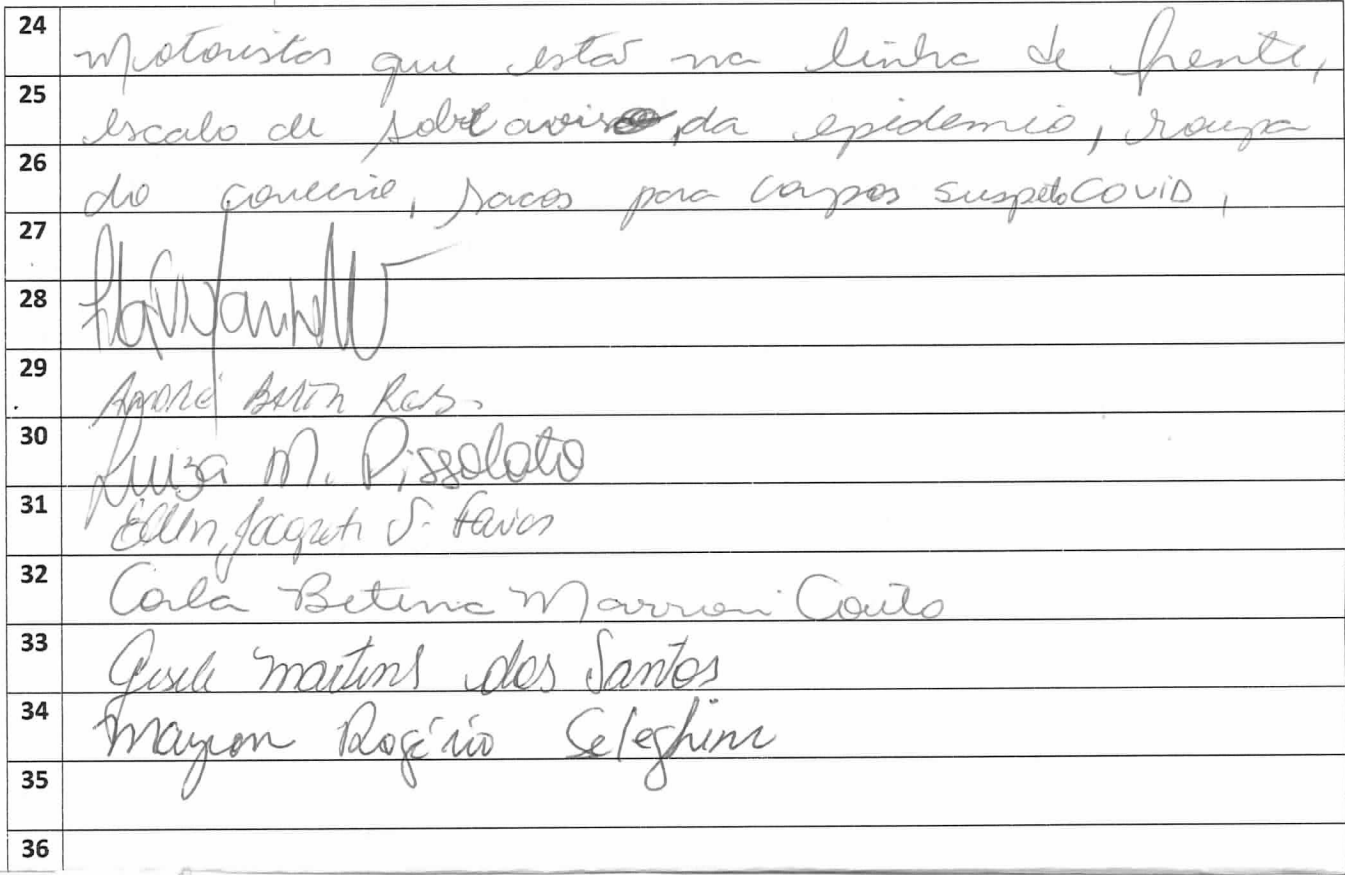 24 Motoristas que está na linha de frente,
25 escala de sobre aviso, da epidemia, roupa
26 do , sacos para corpos suspeto COVID,
27
28
29 André
30 Luiza M. Pissolato
31 Ellen S. Farias
32 Carla Betina Marroni Couto
33 Gisele Martins dos Santos
34 Mayron Rogério Seleghini
35
36